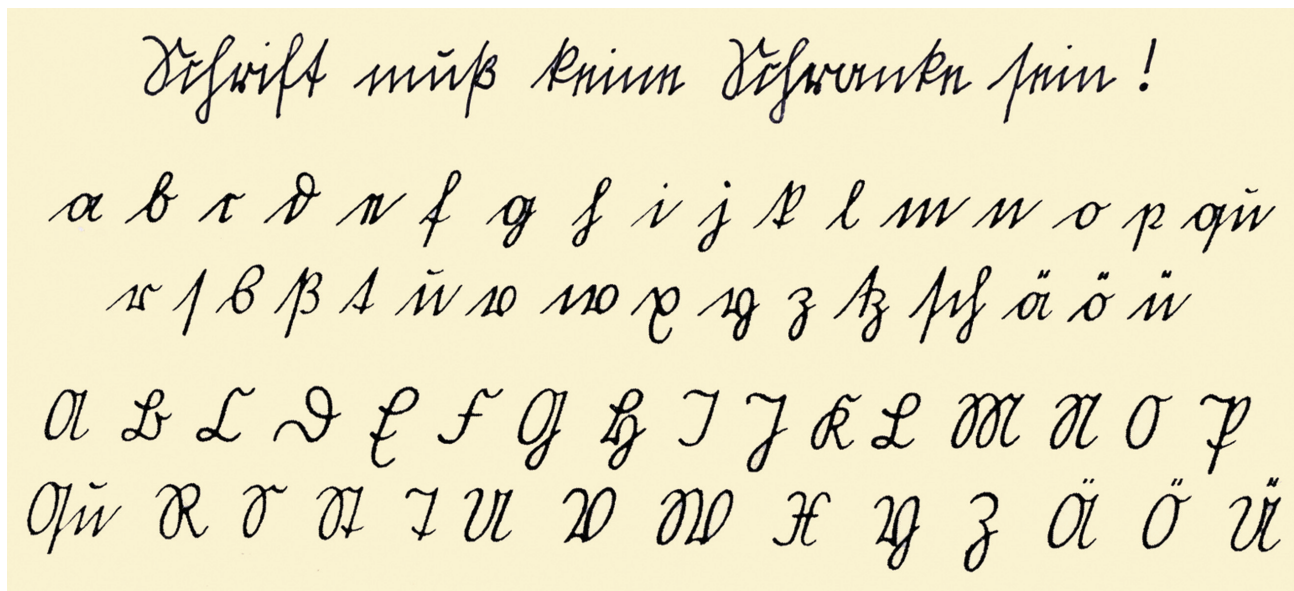 Schrift muß keine Schranke sein!
a b c d e f g h i j k l m n o p qu
r ſ s ß t u v w x y z tz sch ä ö ü
A B C D E F G H I J K L M N O P
Qu R S St T U V W X Y Z Ä Ö Ü